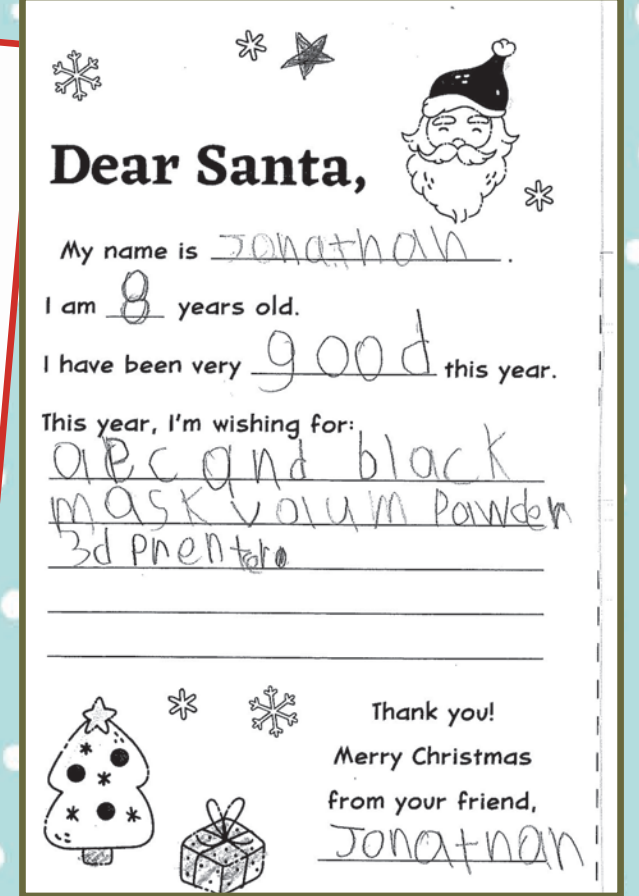 Dear Santa,
My name is Jonathan.
I am 8 years old.
I have been very good this year.
This year, I'm wishing for:
a PC and black
mask volum Powder
3d Prentoro
Thank you!
Merry Christmas
from your friend,
Jonathan